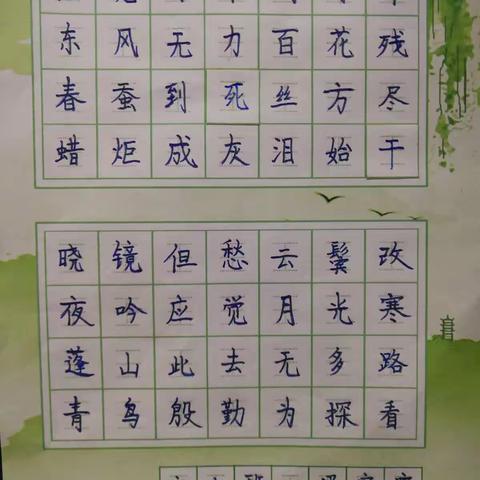 东风无力百花残
春蚕到死丝方尽
蜡炬成灰泪始干
晓镜但愁云鬓改
夜吟应觉月光寒
蓬山此去无多路
青鸟殷勤为探看